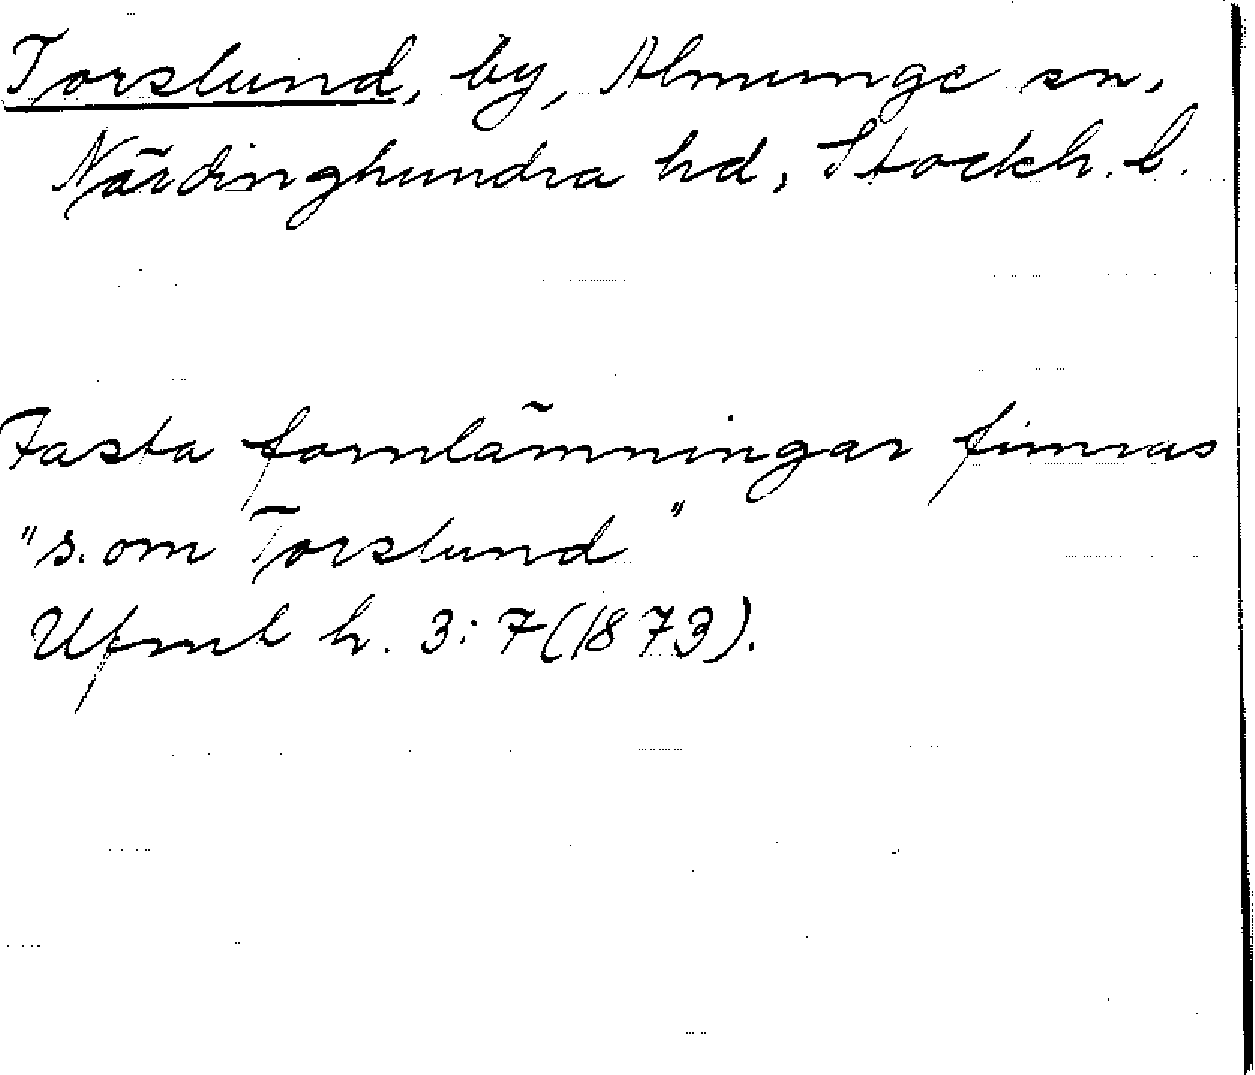 Torslund, by, Almunge sn,
Närdinghundra hd, Stockh. l.
Fasta fornlämningar finnas
"s. om Torslund"
Ufmt h. 3:7(1873).